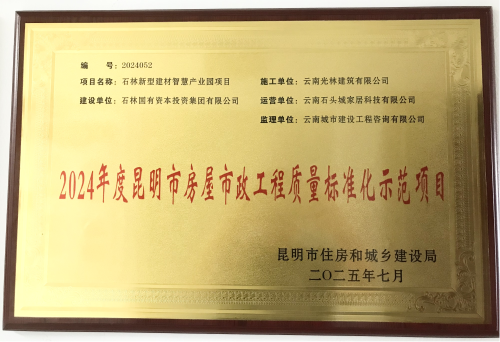 编　号：2024052
项目名称：石林新型建材智慧产业园项目　施工单位：云南光林建筑有限公司
建设单位：石林国有资本投资集团有限公司　运营单位：云南石头城家居科技有限公司
监理单位：云南城市建设工程咨询有限公司
2024年度昆明市房屋市政工程质量标准化示范项目
昆明市住房和城乡建设局
二〇二五年七月